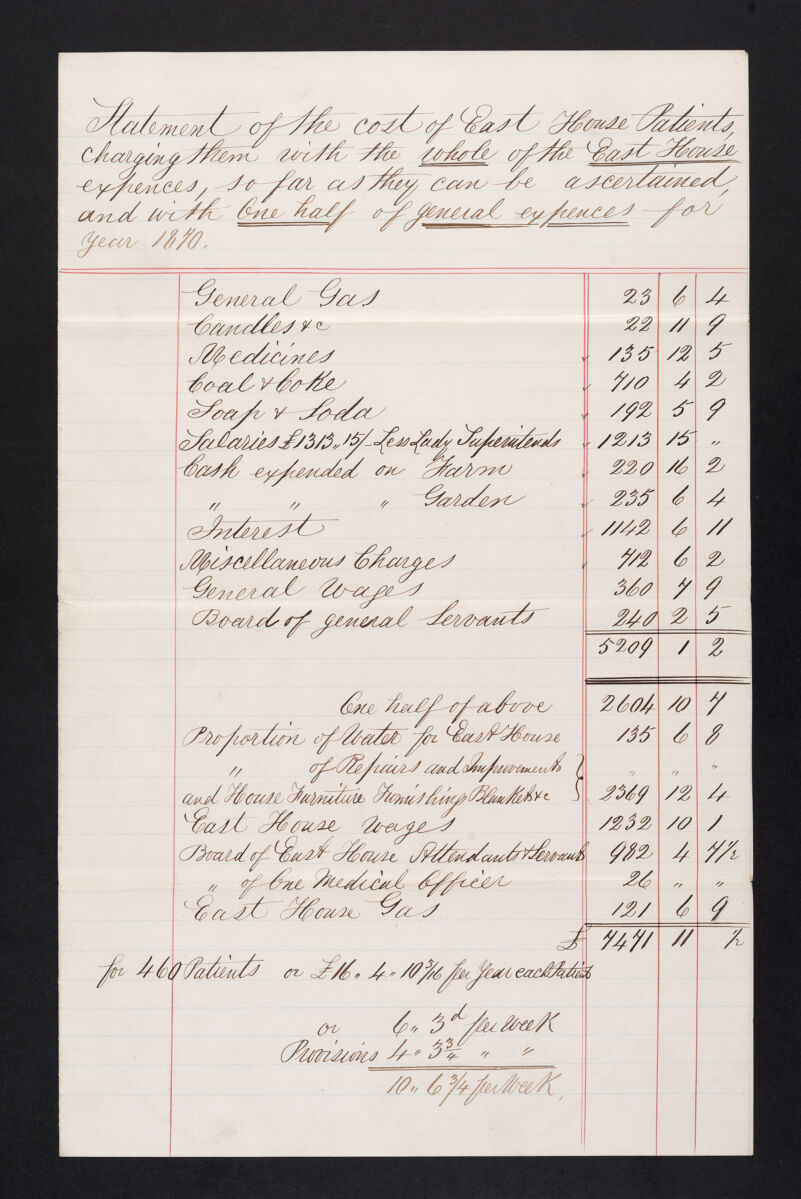 Statement of the cost of East House Patients,
charging them with the whole of the East House
expences, so far as they can be ascertained,
and with One half of general expences for
Year 1870.
General Gas 23 6 4
Candles &c 22 11 9
Medicines 135 12 5
Coal & Coke 710 4 2
Soap & Soda 192 5 9
Salaries £1313,, 15/- Less Lady Superintends 1213 15 "
Cash expended on Farm 220 16 2
" " " Garden 235 6 4
Interest 1142 6 11
Miscellaneous Charges 712 6 2
General Wages 360 7 9
Board of general Servants 240 2 5
5209 1 2
One half of above 2604 10 7
Proportion of Water for East House 135 6 8
" of Repairs and Improvements " " "
and House Furniture Furnishing Blankets &c 2369 12 4
East House Wages 1232 10 1
Board of East House Attendants & Servants 982 4 7½
" of One Medical Officer 26 " "
East House Gas 121 6 9
£ 7471 11 ½
for 460 Patients or £16,, 4,, 10 3/16 per Year each Patient
or 6,, 3d per Week
Provisions 4,, 3¾ " "
10,, 6¾ per Week.